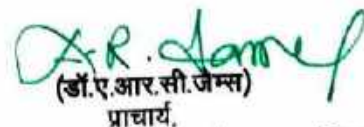 A.R. James
(डॉ.ए.आर.सी.जेम्स)
प्राचार्य,